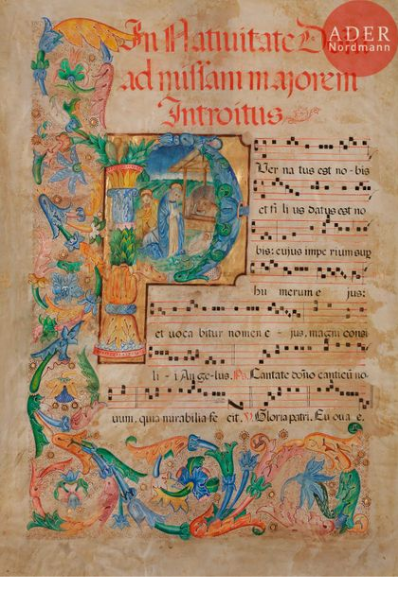 In Natiuitate D
ADER
Nordmann
ad missam majorem
Introitus
P
Uer na tus est no-bis
et fi li us datus est no
bis: cujus impe rium sup
hu merum e jus:
et uoca bitur nomen e - jus, magni consi
li - i An ge-lus. Ps. Cantate dño canticũ no
uum. quia mirabilia fe cit. V. Gloria patri. Eu ou a e.